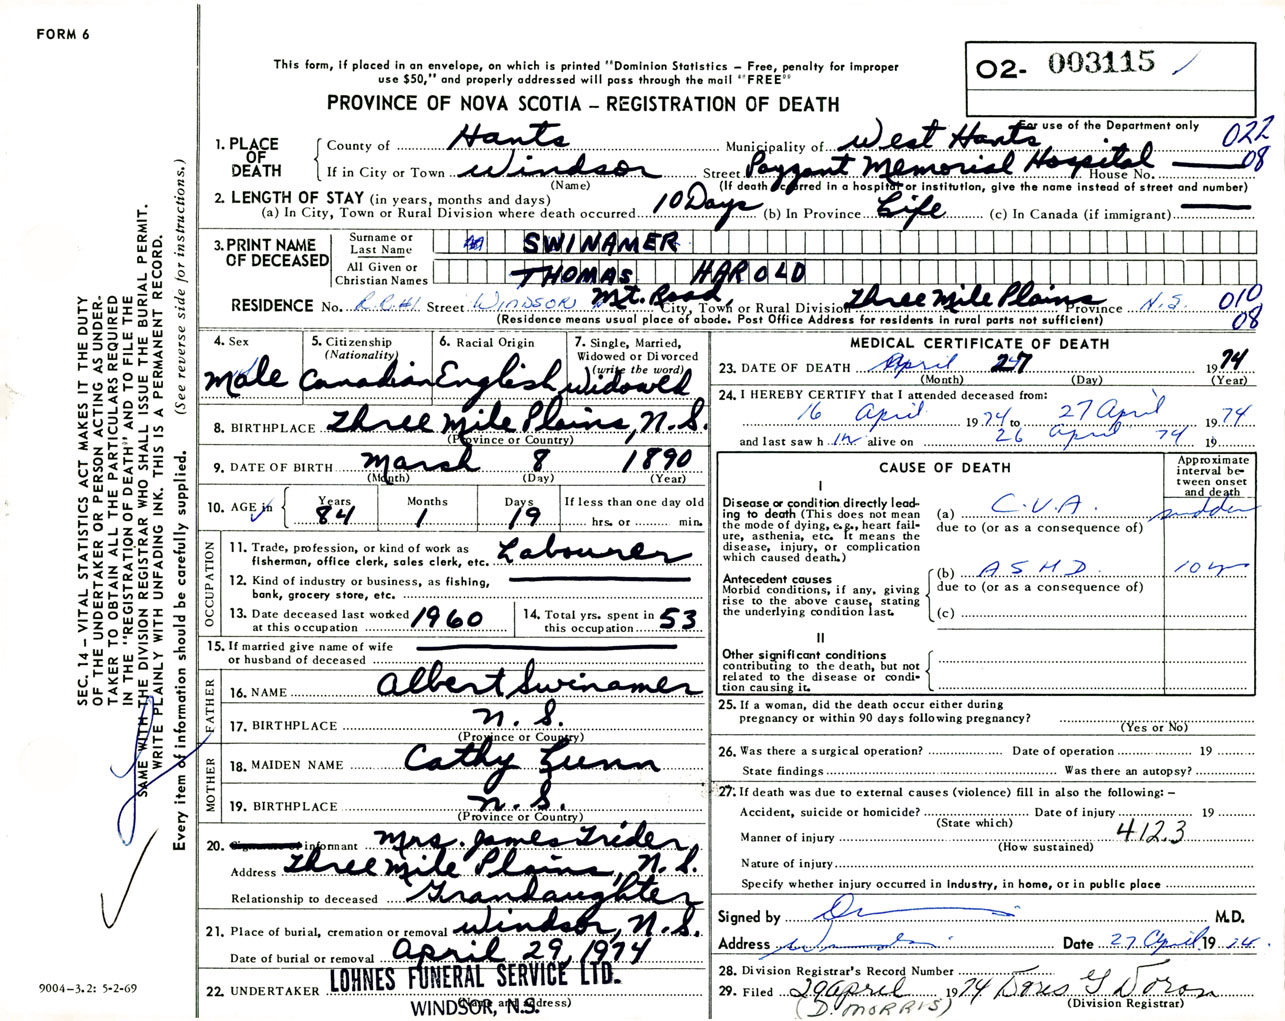 FORM 6
This form, if placed in an envelope, on which is printed "Dominion Statistics – Free, penalty for improper
use $50," and properly addressed will pass through the mail "FREE"
O2- 003115
For use of the Department only
PROVINCE OF NOVA SCOTIA – REGISTRATION OF DEATH
022
08
1. PLACE OF DEATH
County of Hants Municipality of West Hants
If in City or Town Windsor Street Payzant Memorial Hospital House No.
(Name) (If death occurred in a hospital or institution, give the name instead of street and number)
2. LENGTH OF STAY (in years, months and days)
(a) In City, Town or Rural Division where death occurred 10 Days (b) In Province Life (c) In Canada (if immigrant)
3. PRINT NAME OF DECEASED
Surname or Last Name SWINAMER
All Given or Christian Names THOMAS HAROLD
RESIDENCE No. R.R.#1 Street WINDSOR Mt. Road, City, Town or Rural Division Three Mile Plains Province N.S. 010
08
(Residence means usual place of abode. Post Office Address for residents in rural parts not sufficient)
4. Sex Male
5. Citizenship (Nationality) Canadian
6. Racial Origin English
7. Single, Married, Widowed or Divorced (write the word) Widowed
8. BIRTHPLACE Three Mile Plains, N.S.
(Province or Country)
9. DATE OF BIRTH March 8 1890
(Month) (Day) (Year)
10. AGE in Years 84 Months 1 Days 19 If less than one day old
hrs. or min.
OCCUPATION
11. Trade, profession, or kind of work as fisherman, office clerk, sales clerk, etc. Labourer
12. Kind of industry or business, as fishing, bank, grocery store, etc.
13. Date deceased last worked at this occupation 1960
14. Total yrs. spent in this occupation 53
15. If married give name of wife or husband of deceased
FATHER
16. NAME Albert Swinamer
17. BIRTHPLACE N.S.
(Province or Country)
MOTHER
18. MAIDEN NAME Cathy Lunn
19. BIRTHPLACE N.S.
(Province or Country)
20. informant Mrs. James Trider,
Address Three Mile Plains, N.S.
Relationship to deceased Grandaughter
21. Place of burial, cremation or removal Windsor, N.S.
Date of burial or removal April 29, 1974
22. UNDERTAKER LOHNES FUNERAL SERVICE LTD.
WINDSOR, N.S.
(Name and address)
MEDICAL CERTIFICATE OF DEATH
23. DATE OF DEATH April 27 1974
(Month) (Day) (Year)
24. I HEREBY CERTIFY that I attended deceased from:
16 April 1974 to 27 April 1974
and last saw him alive on 26 April 74 19
CAUSE OF DEATH
Approximate interval between onset and death
I
Disease or condition directly leading to death (This does not mean the mode of dying, e.g., heart failure, asthenia, etc. It means the disease, injury, or complication which caused death.)
(a) C.V.A. sudden
due to (or as a consequence of)
Antecedent causes
Morbid conditions, if any, giving rise to the above cause, stating the underlying condition last.
(b) ASHD 10 yr
due to (or as a consequence of)
(c)
II
Other significant conditions
contributing to the death, but not related to the disease or condition causing it.
25. If a woman, did the death occur either during
pregnancy or within 90 days following pregnancy?
(Yes or No)
26. Was there a surgical operation? Date of operation 19
State findings Was there an autopsy?
27. If death was due to external causes (violence) fill in also the following: –
Accident, suicide or homicide? Date of injury 19
(State which)
Manner of injury 4123
(How sustained)
Nature of injury
Specify whether injury occurred in Industry, in home, or in public place
Signed by M.D.
Address Date 27 April 19 74.
28. Division Registrar's Record Number
29. Filed 29 April 1974 Doris G Doron
(D. MORRIS) (Division Registrar)
SEC. 14 – VITAL STATISTICS ACT MAKES IT THE DUTY
OF THE UNDERTAKER OR PERSON ACTING AS UNDER-
TAKER TO OBTAIN ALL THE PARTICULARS REQUIRED
IN THE "REGISTRATION OF DEATH" AND TO FILE THE
SAME WITH THE DIVISION REGISTRAR WHO SHALL ISSUE THE BURIAL PERMIT.
WRITE PLAINLY WITH UNFADING INK. THIS IS A PERMANENT RECORD.
Every item of information should be carefully supplied. (See reverse side for instructions.)
9004-3.2: 5-2-69